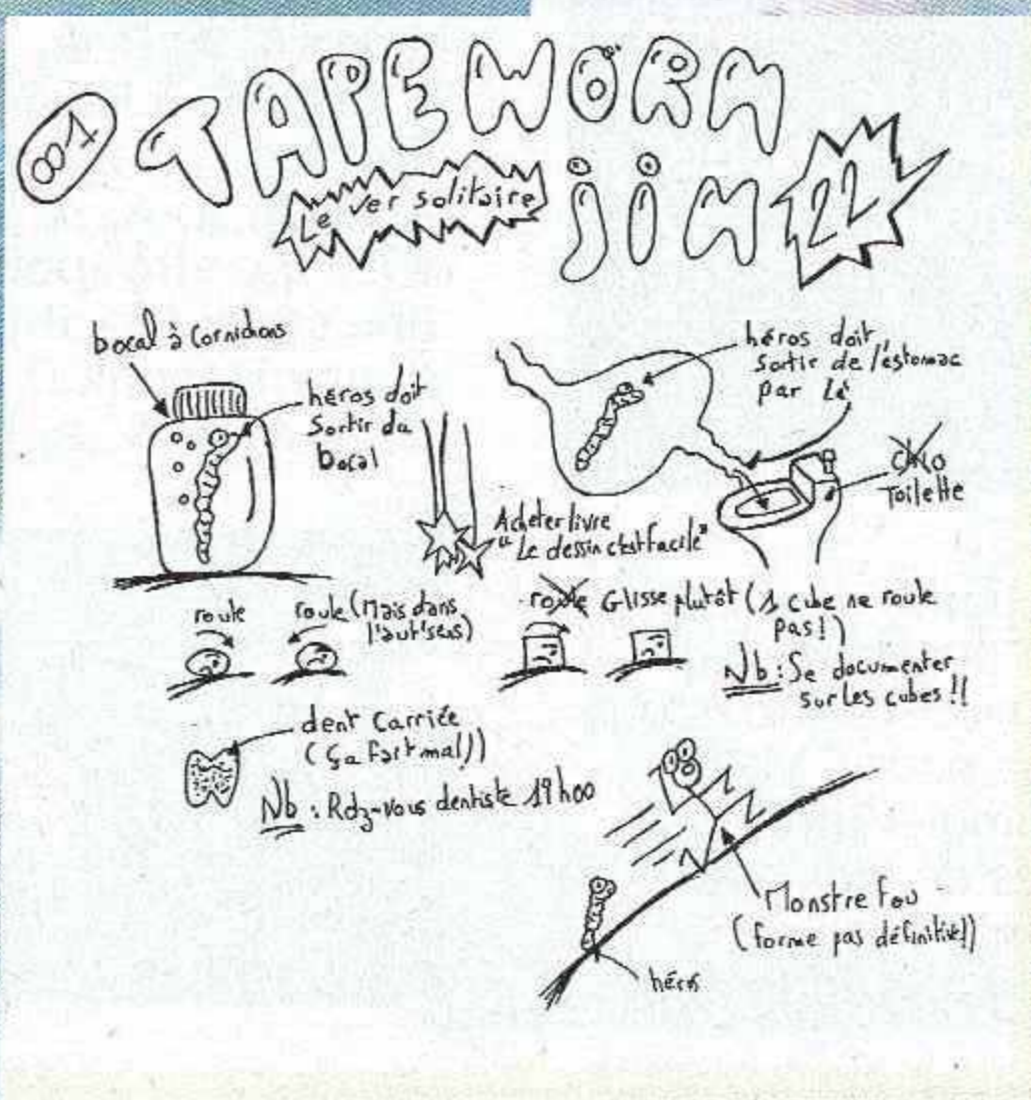 001
TAPEWORM
Le ver solitaire
jiM
22
bocal à cornichons
héros doit
sortir du
bocal
héros doit
sortir de l'estomac
par là
toilette
Acheter livre
"Le dessin c'est facile"
roule
roule (mais dans
l'aut'sens)
roule Glisse plutôt (1 cube ne roule
pas!)
Nb: Se documenter
sur les cubes!!
dent carriée
(ça fait mal!)
Nb: Rdz-vous dentiste 19h00
Monstre fou
(forme pas définitive!)
héros